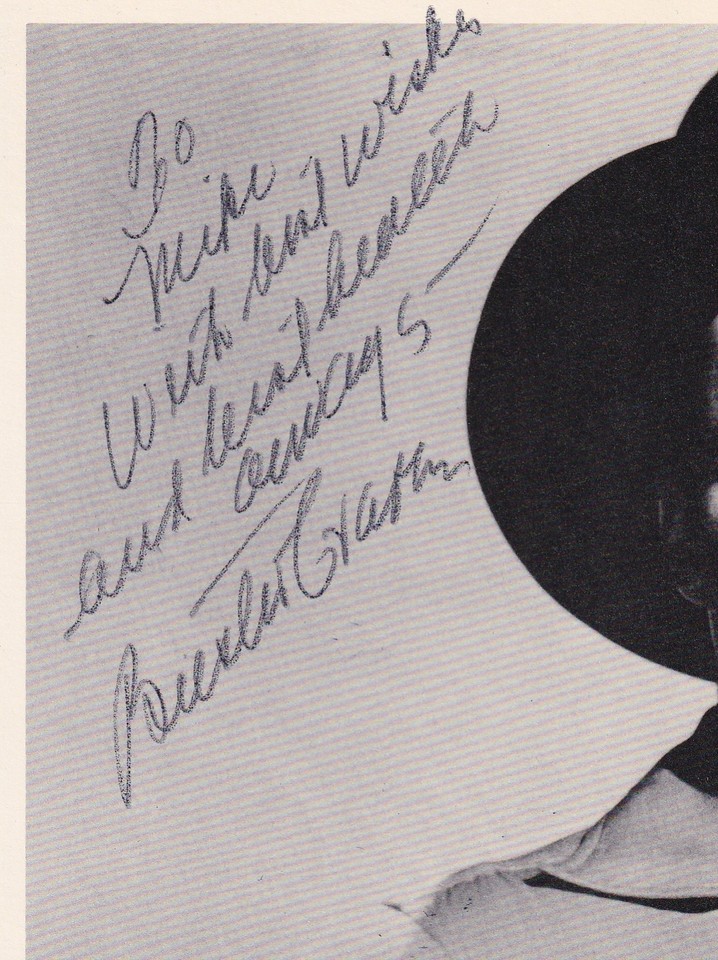 To
Mike
With best wishes
and best health
always —
Buster Crabbe